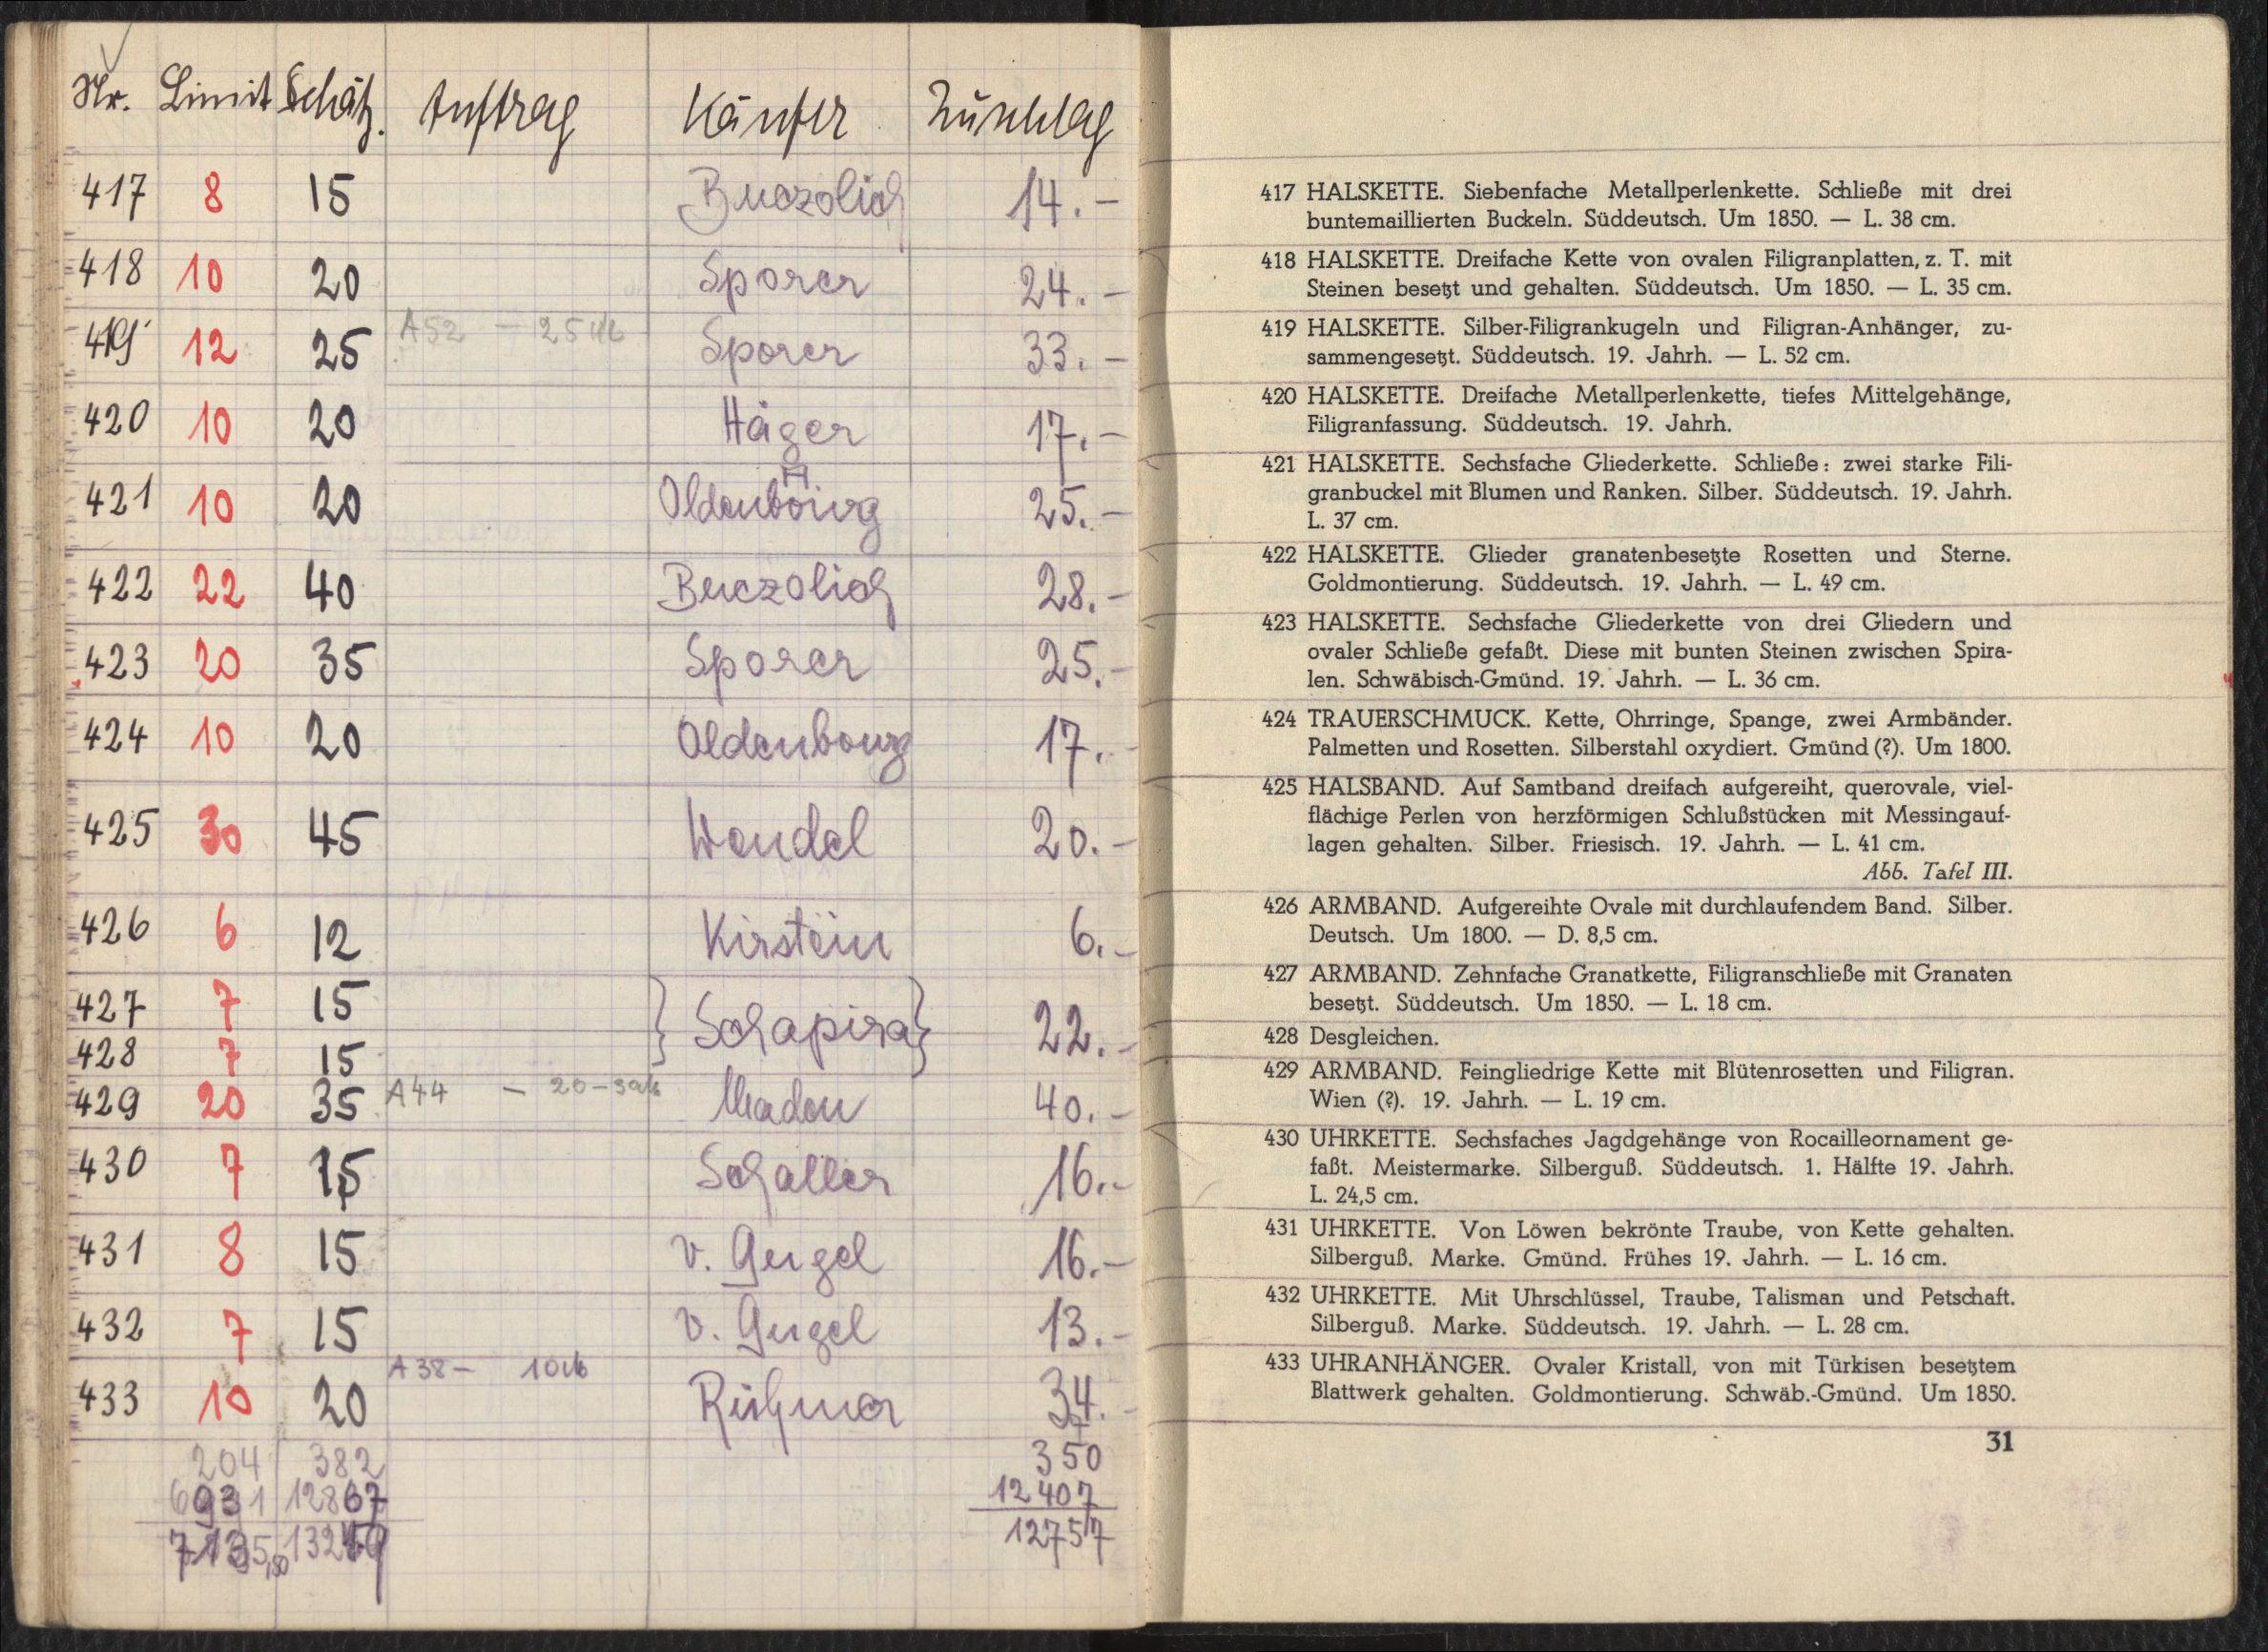 Nr. Limit Schätz. Auftrag Käufer Zuschlag
417 8 15 Buczolich 14.-
418 10 20 Sporer 24.-
419 12 25 A52 - 25 M Sporer 33.-
420 10 20 Häger 17.-
421 10 20 Oldenbourg 25.-
422 22 40 Buczolich 28.-
423 20 35 Sporer 25.-
424 10 20 Oldenbourg 17.-
425 30 45 Wendel 20.-
426 6 12 Kirstein 6.-
427 7 15 } Schapira } 22.-
428 7 15
429 20 35 A44 - 20-30M 40.-
430 7 15 Schaller 16.-
431 8 15 v. Geigel 16.-
432 7 15 v. Geigel 13.-
433 10 20 A38 - 10M 34.-
204 382 350
6931 12867 12407
12757
417 HALSKETTE. Siebenfache Metallperlenkette. Schließe mit drei
buntemaillierten Buckeln. Süddeutsch. Um 1850. — L. 38 cm.
418 HALSKETTE. Dreifache Kette von ovalen Filigranplatten, z. T. mit
Steinen besetzt und gehalten. Süddeutsch. Um 1850. — L. 35 cm.
419 HALSKETTE. Silber-Filigrankugeln und Filigran-Anhänger, zu-
sammengesetzt. Süddeutsch. 19. Jahrh. — L. 52 cm.
420 HALSKETTE. Dreifache Metallperlenkette, tiefes Mittelgehänge,
Filigranfassung. Süddeutsch. 19. Jahrh.
421 HALSKETTE. Sechsfache Gliederkette. Schließe: zwei starke Fili-
granbuckel mit Blumen und Ranken. Silber. Süddeutsch. 19. Jahrh.
L. 37 cm.
422 HALSKETTE. Glieder granatenbesetzte Rosetten und Sterne.
Goldmontierung. Süddeutsch. 19. Jahrh. — L. 49 cm.
423 HALSKETTE. Sechsfache Gliederkette von drei Gliedern und
ovaler Schließe gefaßt. Diese mit bunten Steinen zwischen Spira-
len. Schwäbisch-Gmünd. 19. Jahrh. — L. 36 cm.
424 TRAUERSCHMUCK. Kette, Ohrringe, Spange, zwei Armbänder.
Palmetten und Rosetten. Silberstahl oxydiert. Gmünd (?). Um 1800.
425 HALSBAND. Auf Samtband dreifach aufgereiht, querovale, viel-
flächige Perlen von herzförmigen Schlußstücken mit Messingauf-
lagen gehalten. Silber. Friesisch. 19. Jahrh. — L. 41 cm.
Abb. Tafel III.
426 ARMBAND. Aufgereihte Ovale mit durchlaufendem Band. Silber.
Deutsch. Um 1800. — D. 8,5 cm.
427 ARMBAND. Zehnfache Granatkette, Filigranschließe mit Granaten
besetzt. Süddeutsch. Um 1850. — L. 18 cm.
428 Desgleichen.
429 ARMBAND. Feingliedrige Kette mit Blütenrosetten und Filigran.
Wien (?). 19. Jahrh. — L. 19 cm.
430 UHRKETTE. Sechsfaches Jagdgehänge von Rocailleornament ge-
faßt. Meistermarke. Silberguß. Süddeutsch. 1. Hälfte 19. Jahrh.
L. 24,5 cm.
431 UHRKETTE. Von Löwen bekrönte Traube, von Kette gehalten.
Silberguß. Marke. Gmünd. Frühes 19. Jahrh. — L. 16 cm.
432 UHRKETTE. Mit Uhrschlüssel, Traube, Talisman und Petschaft.
Silberguß. Marke. Süddeutsch. 19. Jahrh. — L. 28 cm.
433 UHRANHÄNGER. Ovaler Kristall, von mit Türkisen besetztem
Blattwerk gehalten. Goldmontierung. Schwäb.-Gmünd. Um 1850.
31